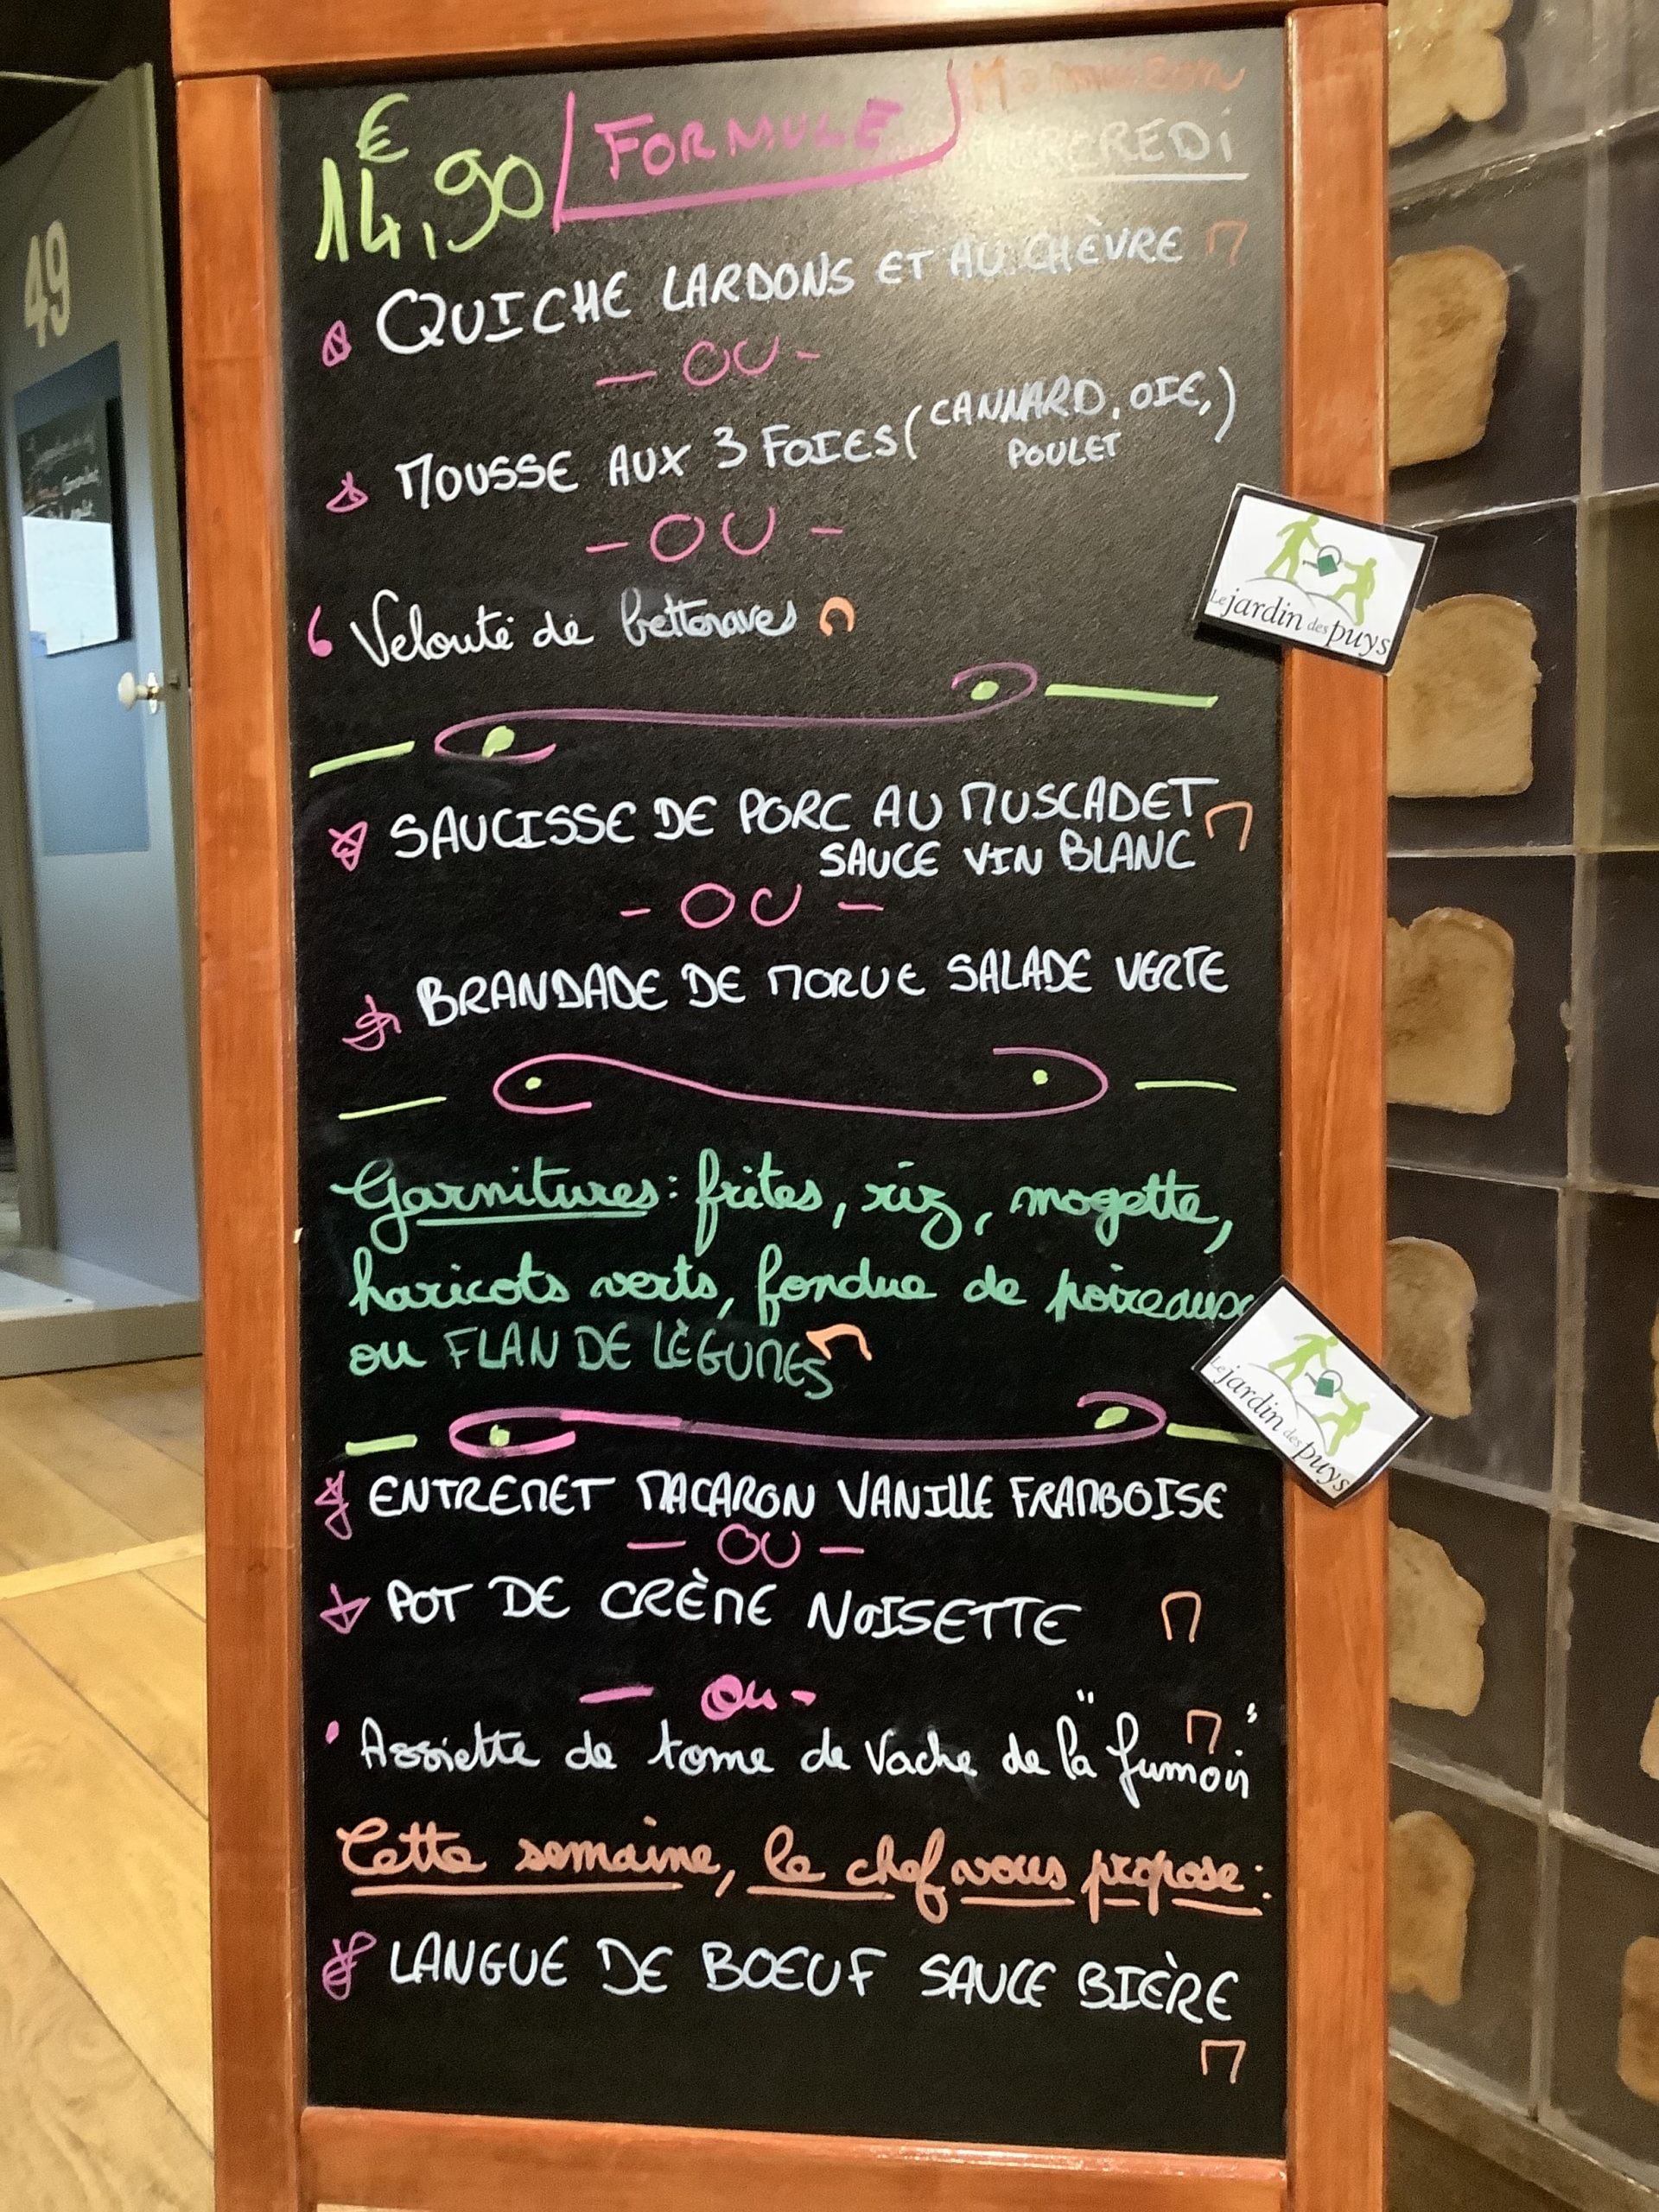 €
14,90 FORMULE M= maison
MERCREDI
QUICHE LARDONS ET AU CHÈVRE M
- OU -
MOUSSE AUX 3 FOIES (CANNARD, OIE,)
POULET
- OU -
Velouté de bettraves M
SAUCISSE DE PORC AU MUSCADET M
SAUCE VIN BLANC
- OU -
BRANDADE DE MORUE SALADE VERTE
Garnitures: frites, riz, mogette,
haricots verts, fondue de poireaux
ou FLAN DE LÈGUMES M
ENTREMET MACARON VANILLE FRAMBOISE
- OU -
POT DE CRÈME NOISETTE M
- Ou -
Assiette de tome de vache de la "fumoir" M
Cette semaine, le chef vous propose:
LANGUE DE BOEUF SAUCE BIÈRE
M
Le jardin des puys
Le jardin des puys
49